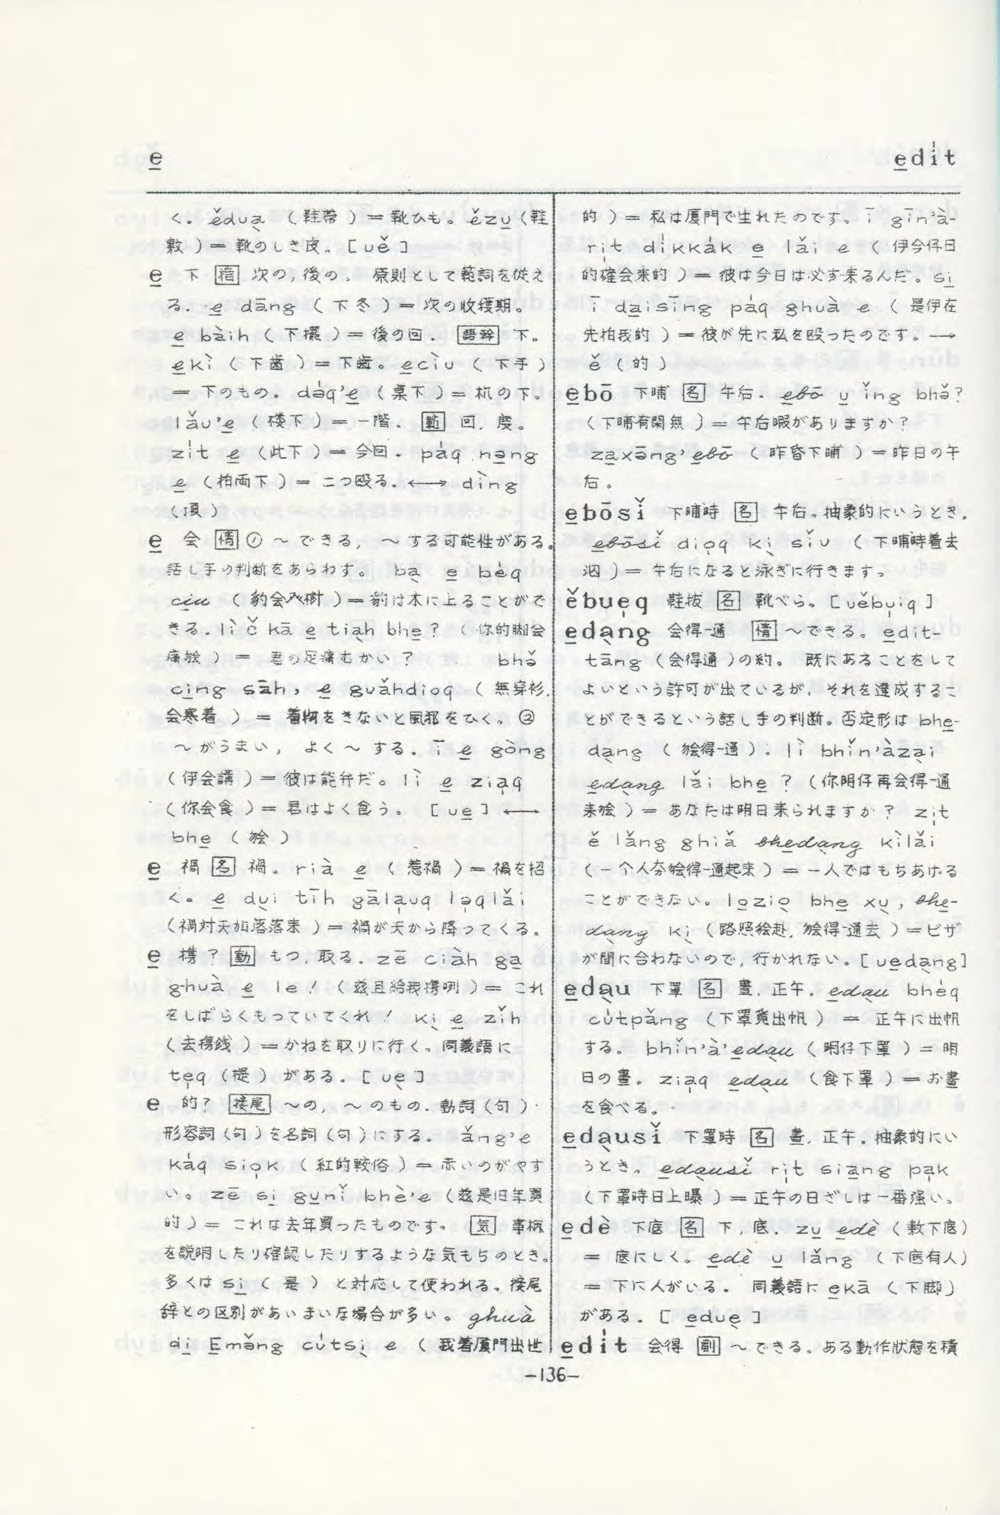 e̲
e̲dı̍t
く。ědua̱ (鞋帶)＝靴ひも。ězụ (鞋
敷)＝靴のしき皮。[uě]
e̲ 下 [指] 次の,後の。原則として範詞を従え
る。e̲ dāng (下冬)＝次の収穫期。
e̲ bàih (下擺)＝後の回。[語幹] 下。
e̲kì (下齒)＝下歯。e̲cìu (下手)
＝下のもの。dəq'e̲ (桌下)＝机の下。
lǎu'e̲ (楼下)＝一階。[範] 回,度。
zı̍t e̲ (此下)＝今回。pāq nəng
e̲ (拍両下)＝二つ殴る。←→ dìng
(頂)
e̲ 会 [情] ① ～できる, ～する可能性がある。
話し手の判断をあらわす。ba̱ e̲ bèq
ciu (豹会樹)＝豹は木に上ることがで
きる。lì ē kā e̲ tiạh bhe̲? (你的脚会
痛𣍐)＝君の足痛むかい? bhə̌
cı̱ng sāh, e̲ guǎhdioq (無穿衫,
会寒着)＝着物をきないと風邪をひく。②
～がうまい, よく～する。ī e̲ gòng
(伊会講)＝彼は能弁だ。lì e̲ ziaq
(你会食)＝君はよく食う。[ue̲] ←→
bhe̲ (𣍐)
e̲ 禍 [名] 禍。rià e̲ (惹禍)＝禍を招
く。e̲ dụi tīh gālauq ləqlǎi
(禍対天加落落来)＝禍が天から降ってくる。
e̲ 携? [動] もつ,取る。zē ciàh ga̱
ghuà e̲ le! (玆且給我携咧)＝これ
をしばらくもっていてくれ! kị e̲ zǐh
(去携銭)＝かねを取りに行く。同義語に
te̍q (提) がある。[ue̲]
e 的? [接尾] ～の, ～のもの。動詞(句)・
形容詞(句)を名詞(句)にする。ǎng'e
kāq sio̱k (紅的較俗)＝赤いのがやす
い。zē sị gụnǐ bhè'e (玆是旧年買
的)＝これは去年買ったものです。[気] 事柄
を説明したり確認したりするような気もちのとき。
多くは sị (是) と対応して使われる。接尾
辞との区別があいまいな場合が多い。ghuà
dị E̲mǎng cùtsị e (我着厦門出世
的)＝私は厦門で生れたのです。ī gīn'à-
rı̍t dı̍kkǎk e̲ lǎi e (伊今仔日
的確会来的)＝彼は今日は必ず来るんだ。sị
ī dạisīng pàq ghuà e (是伊在
先拍我的)＝彼が先に私を殴ったのです。→
ě (的)
e̲bō 下晡 [名] 午后。e̲bō ụ ǐng bhə̌?
(下晡有閑無)＝午后暇がありますか?
zạxəng'e̲bō (昨昏下晡)＝昨日の午
后。
e̲bōsǐ 下晡時 [名] 午后。抽象的にいうとき。
e̲bōsǐ dioq kị sǐu (下晡時着去
泅)＝午后になると泳ぎに行きます。
ěbueq 鞋拔 [名] 靴べら。[uěbuiq]
e̲dạng 会得-通 [情] ～できる。e̲dit-
tāng (会得通) の約。既にあることをして
よいという許可が出ているが, それを達成するこ
とができるという話し手の判断。否定形は bhe̲-
dạng (𣍐得-通)。lì bhǐn'àzại
e̲dạng lǎi bhe̲? (你明仔再会得-通
来𣍐)＝あなたは明日来られますか? zı̍t
ě lǎng ghiǎ bhe̲dạng kìlǎi
(一个人夯𣍐得-通起来)＝一人ではもちあげる
ことができない。lọziọ bhe̲ xụ, bhe̲-
dạng kị (路照𣍐赴,𣍐得-通去)＝ビザ
が間に合わないので,行かれない。[ue̲dạng]
e̲dạu 下罩 [名] 昼,正午。e̲dạu bhéq
cùtpǎng (下罩覓出帆)＝正午に出帆
する。bhǐn'à'e̲dạu (明仔下罩)＝明
日の昼。ziaq e̲dạu (食下罩)＝お昼
を食べる。
e̲dạusǐ 下罩時 [名] 昼,正午。抽象的にい
うとき。e̲dạusǐ rı̍t siạng pak
(下罩時日上曝)＝正午の日ざしは一番強い。
e̲dè 下底 [名] 下,底。zụ e̲dè (敷下底)
＝底にしく。e̲dè ụ lǎng (下底有人)
＝下に人がいる。同義語に e̲kā (下脚)
がある。[e̲due]
e̲dı̍t 会得 [副] ～できる。ある動作状態を積
－136－